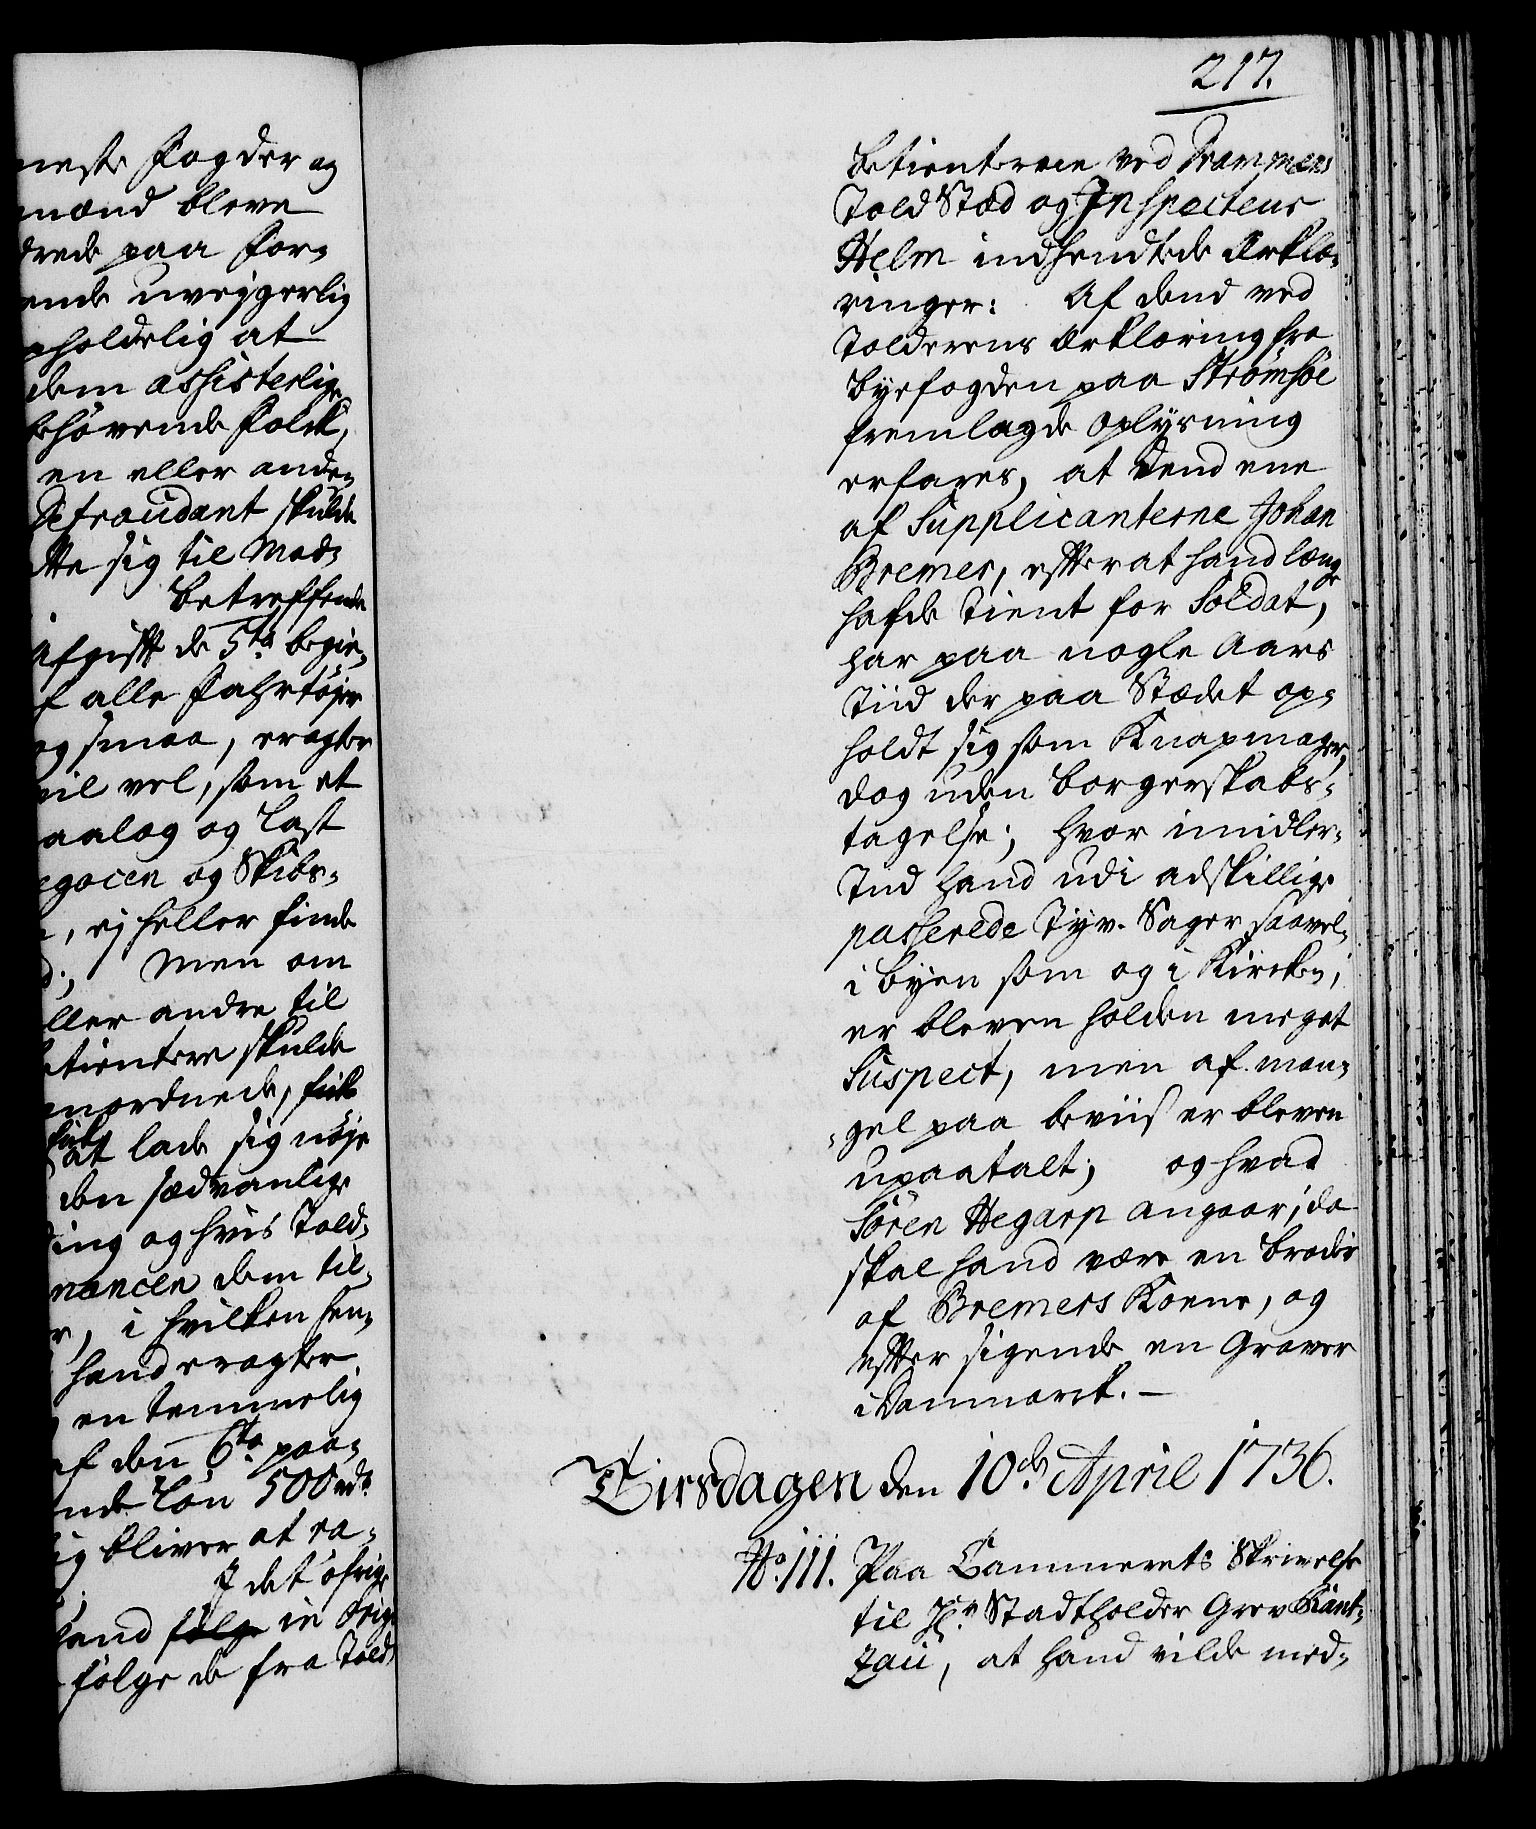 neste Fogder og
mænd bleve
drede paa For-
ende uveygerlig
pholdelig at
dem assisterlige
behövende Folck,
en eller anden
Defraudant skulde
tte sig til Mod-
betreffende
Afgifft de 5ta begie-
f alle Fahrtöjer
og smaa, eragter
vil vel, som et
aalæg og Last
egocen og Skibs-
, ej heller finde
d; Men om
ller andre til
etientere skulde
nordnede, fick
fick at lade sig nöje
den sædvanlige
ing og hvis Told-
nancen dem til-
r, i hvilken hen-
hand eragter
en temmelig
af den 6ta paa-
nde Lön 500 rdr
ig bliver at ra-
I det öfrige
sand fölge in Orig-
fölge de fra Told-
217.
betienterne ved Drammens
Told Stæd og Inspecteur
Helm indsendtede Erklæ-
ringer: Af dend ved
Tolderens Erklæring fra
Byefogden paa Strömsöe
fremlagde Oplysning
erfares, at dend ene
af Supplicanterne Johan
Bremer, efter at hand længe
hafde tient for Soldat,
har paa nogle Aars
Tiid der paa Stædet op-
holdt sig som Knapmager,
dog uden Borgerskabs-
tagelse; hvor imidler-
Tiid hand udi adskillige
passerede Tyv-Sager saavel-
i Byen som og i Kircken,
er bleven holden meget
Suspect, men af man-
-gel paa beviis er bleven
upaatalt; og hvad
Sören Hegarp angaar, da
skal hand være en Broder
af Bremers Koene, og
efter sigende en Graver
i Danmarck. —
Tirsdagen den 10de April 1736.
No. 111. Paa Cammerets Skrivelse
til Hr. Stadtholder Grev Rant-
zau, at hand vilde med-